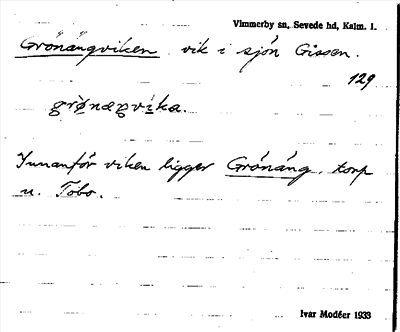 Vimmerby sn, Sevede hd, Kalm. l.
Grönängviken vik i sjön Gissen.
129
grø̀næŋvi̇̀ka.
Innanför viken ligger Grönäng, torp
u. Tobo.
Ivar Modéer 1933